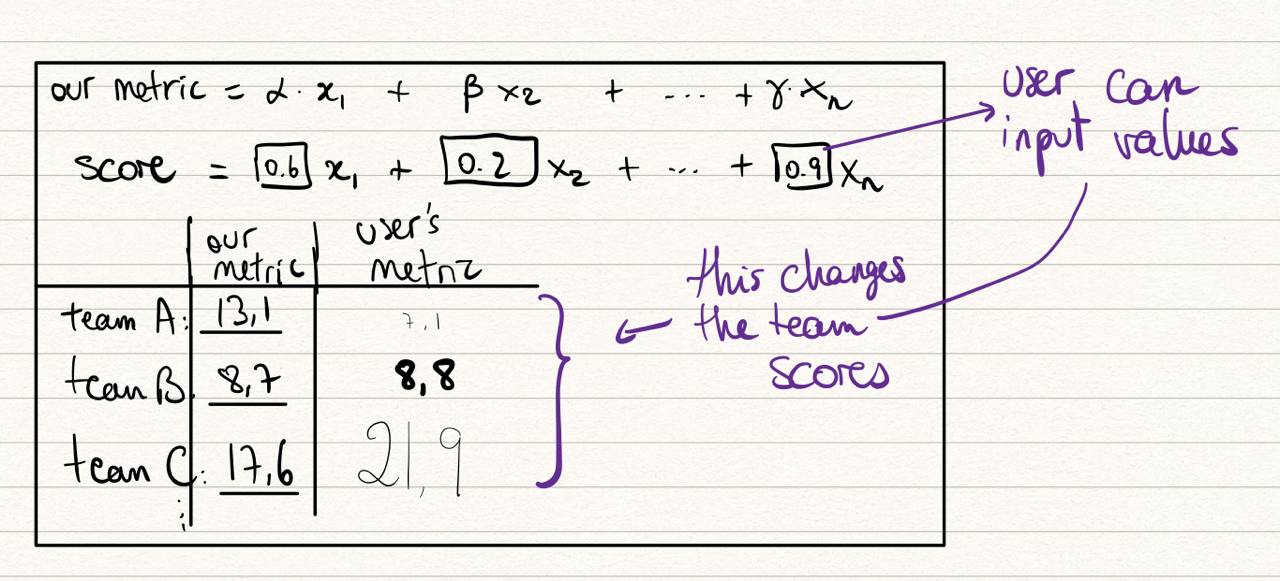 our metric = α · x₁ + β x₂ + ... + γ · xₙ
score = 0.6 x₁ + 0.2 x₂ + ... + 0.9 xₙ
user can
input values
our metric
user's metric
team A: 13,1 7,1
team B: 8,7 8,8
team C: 17,6 21,9
⋮
this changes
the team
scores